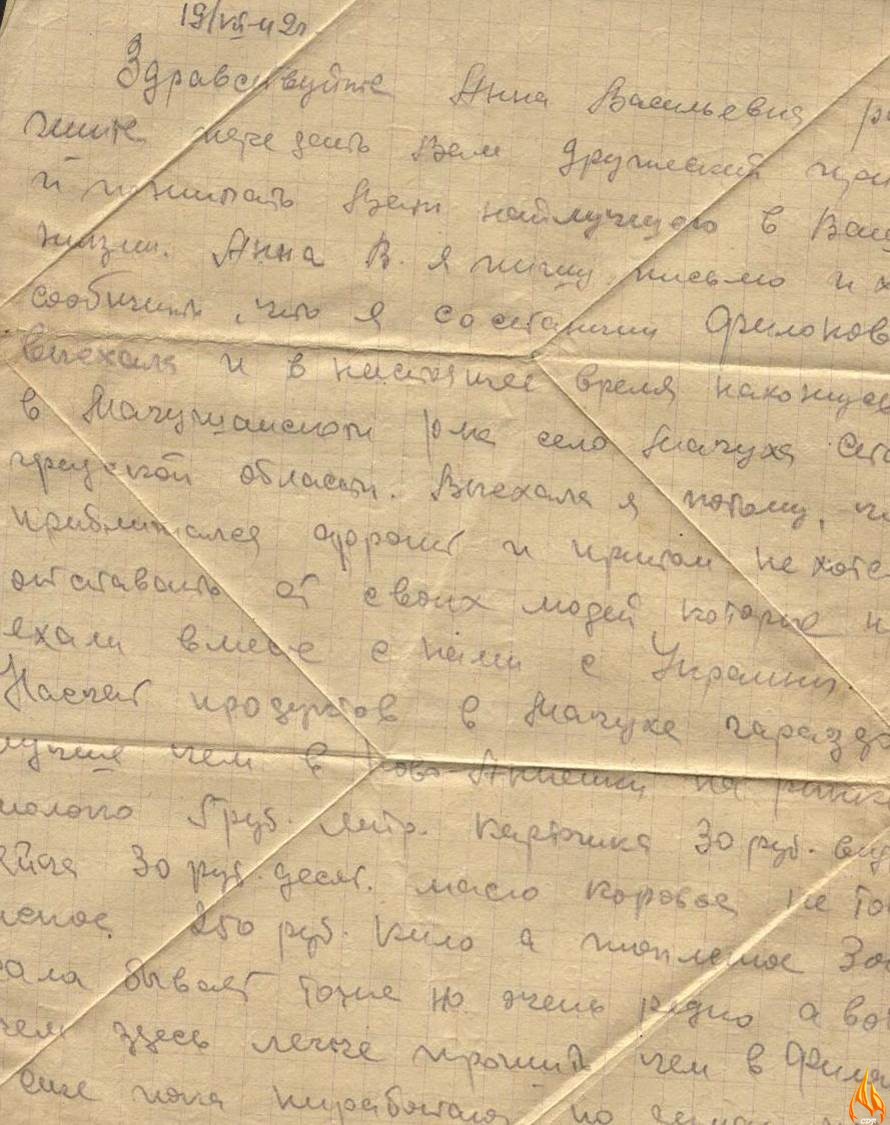 19/VII-42г
Здравствуйте Анна Васильевна
передать Вам дружеский
и пожелать Вам найлучшего в Ваш
жизни. Анна В. я пишу письмо и х
сообщить, что я со станции Филонов
выехала и в настоящее время нахожусь
в Мачушанском р-не село Мачуха Ста
градской области. Выехала я потому, чт
приближался фронт и притом не хоте
отставать от своих людей которые н
ехали вмесе с нами с Украины.
Насчет продуктов в Мачухе гаразда
лучше чем в Ново-Аннешки на рынке
молоко 5 руб. литр. картошка 30 руб. вид
яйца 30 руб. десят. масло коровье не то
леное 250 руб. кило а топленое 300
сала бывает тоже но очень редко а во
чем здесь легче прожить чем в Фила
еще пока